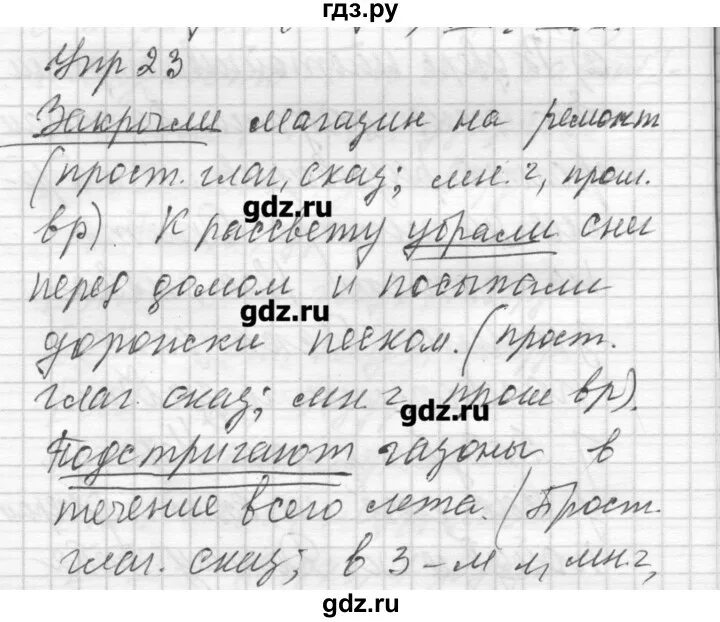 гдз.ру
Упр 23
Закрыли магазин на ремонт
(прост. глаг, сказ; мн. ч, прош.
gdz.ru
вр). К рассвету убрали снег
перед домом и посыпали
gdz.ru
дорожки песком. (прост.
глаг. сказ; мн. ч прош вр).
gdz.ru
Подстригают газоны в
течение всего лета. (Прост.
глаг. сказ; в 3-м л, мн. ч,
gdz.ru